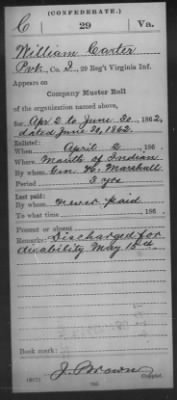 (CONFEDERATE.)
C 29 Va.
William Carter
Pvt., Co. I, 29 Reg't Virginia Inf.
Appears on
Company Muster Roll
of the organization named above,
for Apr 2 to June 30, 1862,
dated June 30, 1862.
Enlisted:
When April 2, 186
Where Mouth of Indian
By whom Gen. H. Marshall
Period 3 yrs
Last paid:
By whom never paid
To what time , 186 .
Present or absent
Remarks: Discharged for
disability May 15th
Book mark:
J. Brown
Copyist.